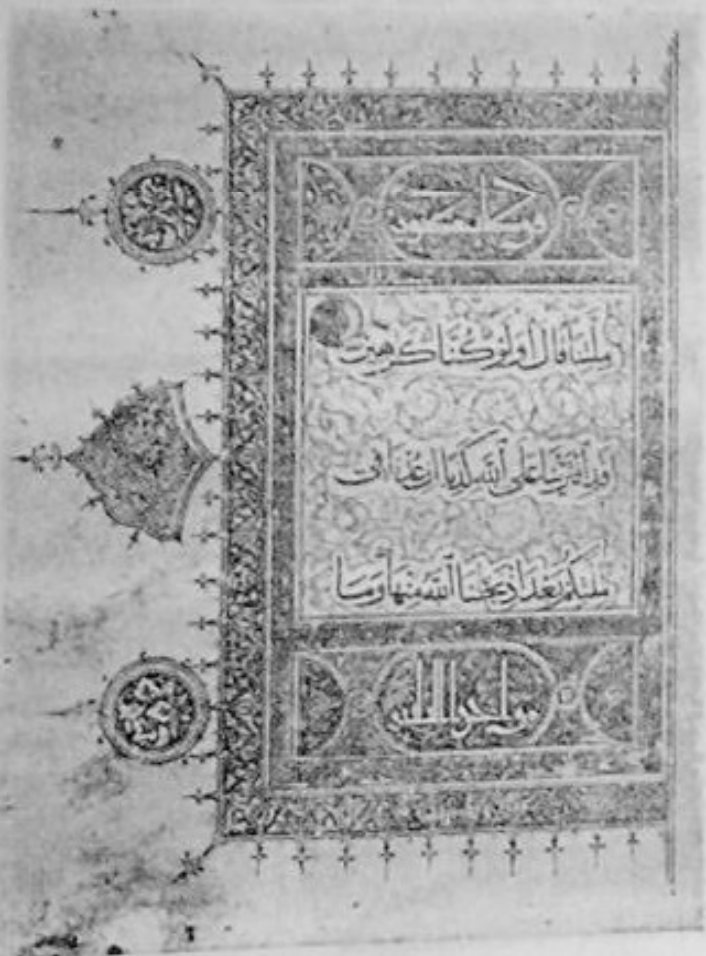 ملتنا قال أولو كنا كرهين
قد افترينا على ٱلله كذبا إن عدنا فى
ملتكم بعد إذ نجىنا ٱلله منها وما